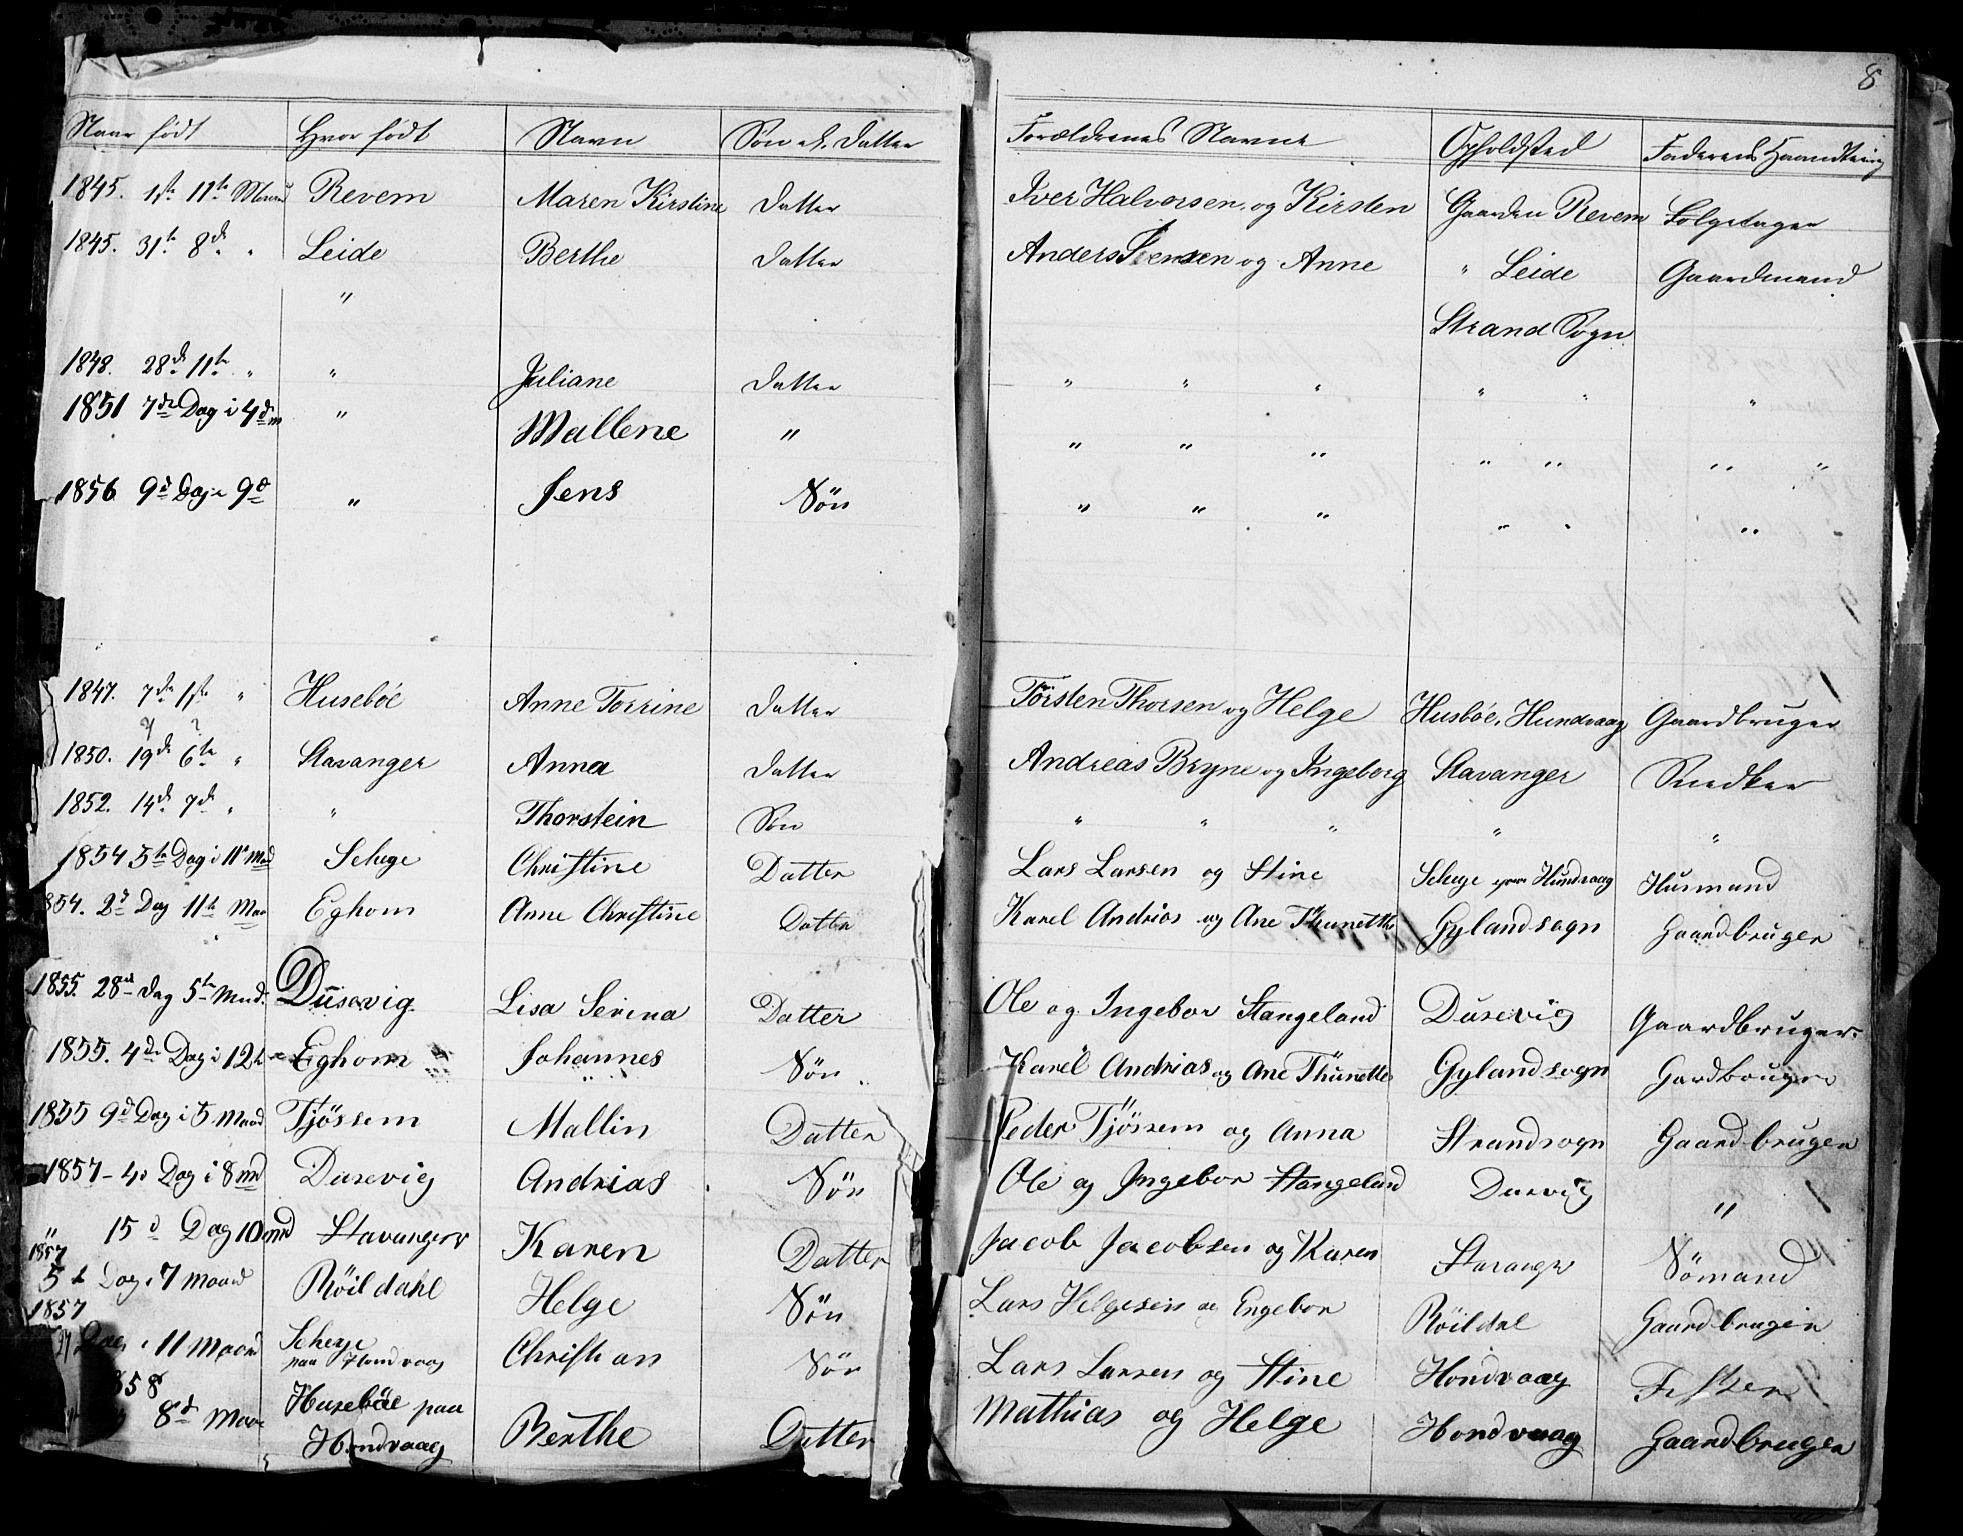 8
Naar født Hvor født Navn Søn el. Datter Forældrenes Navne Opholdsted Faderens Haandtering
1845. 1ste 11te Maaned Revem Maren Kirstine Datter Iver Halvorsen og Kirsten Gaarden Revem Folgetager
1845. 31te 8de " Leide Berthe Datter Anders Jensen og Anne " Leide Gaardmand
" Strand Sogn
1848. 28de 11te " " Juliane Datter " " " " " "
1851 7de Dag i 4de m " Mallene " " " " " " " "
1856 9d Dag i 9d " Jens Søn " " " " " "
1847. 7de 1ste " Husebøe Anne Torrine Datter Torsten Thorsen og Helge Husbøe, Hundvaag Gaardbruger
1850. 19de 6te " Stavanger Anna Datter Andreas Bryne og Ingeborg Stavanger Snedker
1852. 14de 7de " " Thorstein Søn " " " " "
1854 5te Dag i 11te Mad Scheje Christine Datter Lars Larsen og Stine Scheje paa Hundvaag Husmand
1854. 2d Dag 11te Maa Eghom Anne Christine Datter Karel Andrias og Ane Thunette Gylandsogn Gaardbruger
1855. 28de Dag 5te Mnd. Dusevig Lisa Serina Datter Ole og Ingebor Stangeland Dusevig Gaardbruger
1855. 4de Dag i 12te Eghom Johannes Søn Karel Andrias og Ane Thunette Gylandsogn Gardbruger
1855 9d Dag i 5 Maand Tjössem Mallin Datter Peder Tjössem og Anna Strandsogn Gaardbruger
1857 - 4d Dag i 8 md Dusevig Andrias Søn Ole og Ingebor Stangeland Dusvig "
" 15d Dag 10 md Stavanger Karen Datter Jacob Jacobsen og Karen Stavanger Sömand
1857
5t Dag i 7 Maand Röildahl Helge Søn Lars Helgesen og Engebor Röildal Gaardbruger
1857
Dag i 11 Maand Scheje paa Hondvaag Christian Søn Lars Larsen og Stine Hondvaag Fisker
1858
8d Maan Huseböe paa Hondvaag Berthe Datter Mathias og Helge Hondvaag Gaardbruger